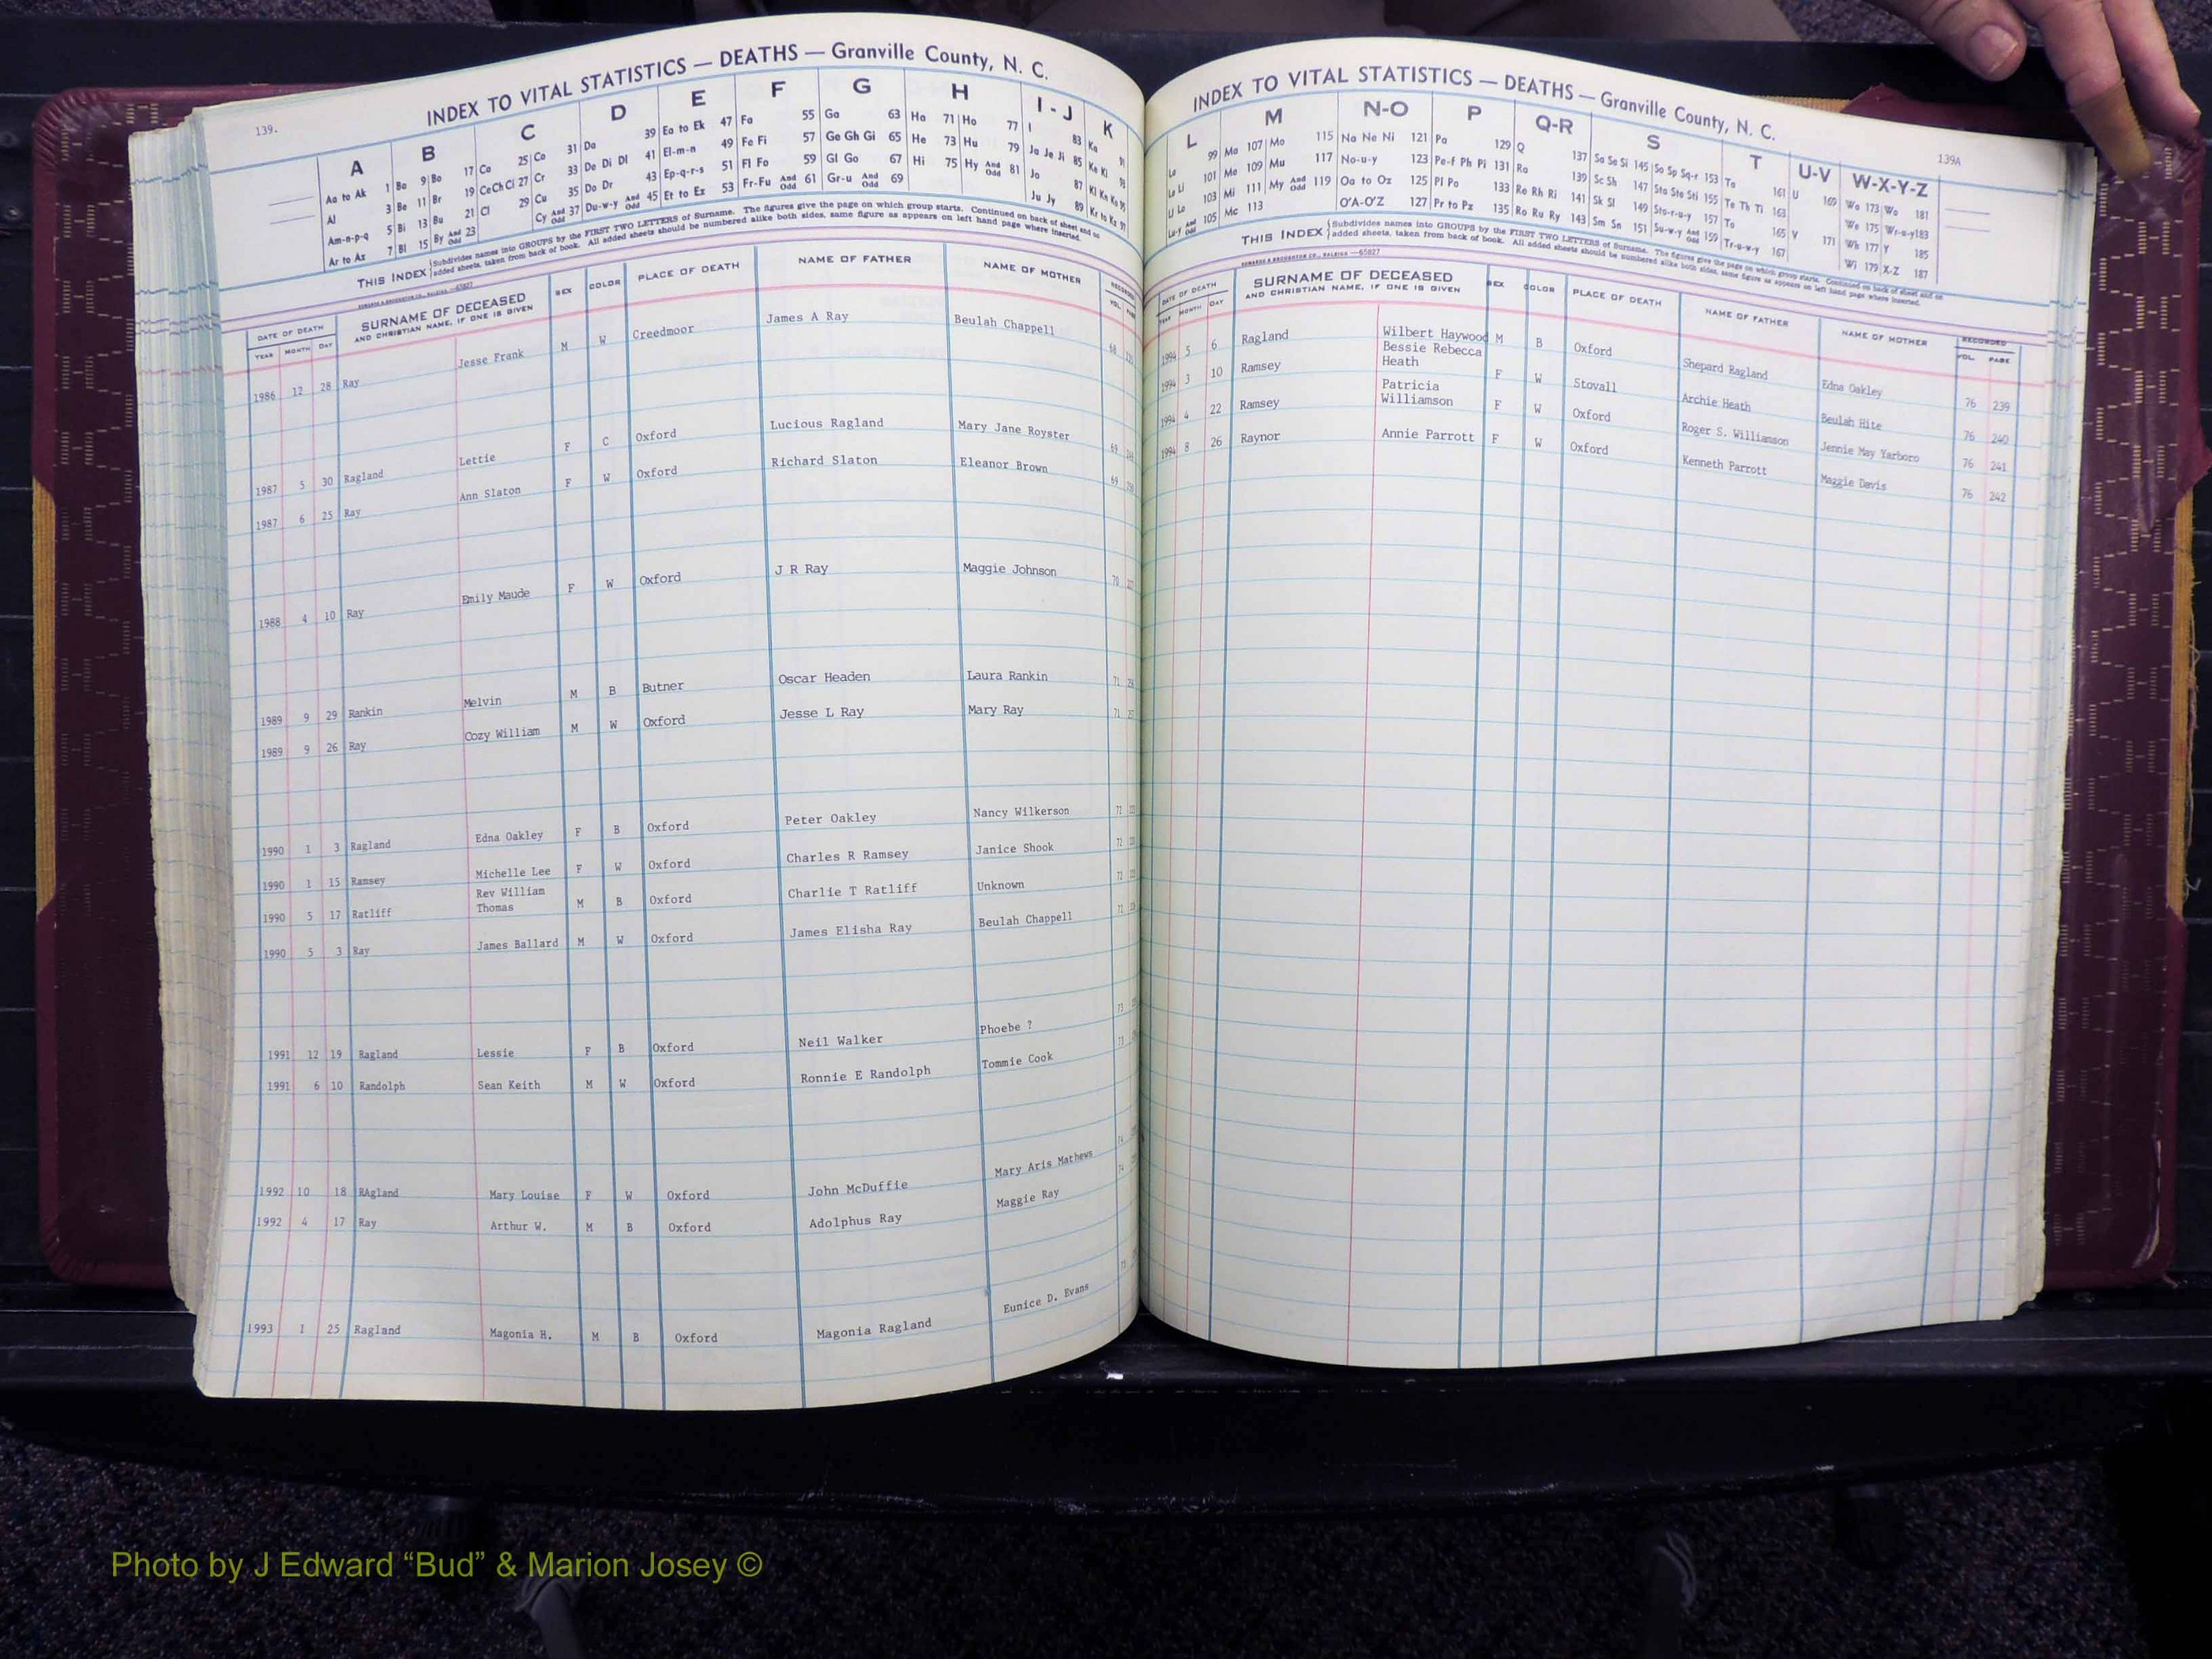 139.
INDEX TO VITAL STATISTICS — DEATHS — Granville County, N. C.
A B C D E F G H I - J K
Aa to Ak 1 Ba 9 Bo 17 Ca 25 Co 31 Da 39 Ea to Ek 47 Fa 55 Ga 63 Ha 71 Ho 77 I 83 Ka
Al 3 Be 11 Br 19 Ce Ch Ci 27 Cr 33 De Di Dl 41 El-m-n 49 Fe Fi 57 Ge Gh Gi 65 He 73 Hu 79 Ja Je Ji 85 Ke Ki
Am-n-p-q 5 Bi 13 Bu 21 Cl 29 Cu 35 Do Dr 43 Ep-q-r-s 51 Fl Fo 59 Gl Go 67 Hi 75 Hy And Odd 81 Jo 87 Kl Kn Ko
Ar to Az 7 Bl 15 By And Odd 23 Cy And Odd 37 Du-w-y And Odd 45 Et to Ez 53 Fr-Fu And Odd 61 Gr-u And Odd 69 Ju Jy 89 Kr to Kz
THIS INDEX Subdivides names into GROUPS by the FIRST TWO LETTERS of Surname. The figures give the page on which group starts. Continued on back of sheet and on
added sheets, taken from back of book. All added sheets should be numbered alike both sides, same figure as appears on left hand page where inserted.
EDWARDS & BROUGHTON CO., RALEIGH —65827
DATE OF DEATH SURNAME OF DECEASED SEX COLOR PLACE OF DEATH NAME OF FATHER NAME OF MOTHER RECORDED
YEAR MONTH DAY AND CHRISTIAN NAME, IF ONE IS GIVEN VOL.
1986 12 28 Ray Jesse Frank M W Creedmoor James A Ray Beulah Chappell 68
1987 5 30 Ragland Lettie F C Oxford Lucious Ragland Mary Jane Royster 69
1987 6 25 Ray Ann Slaton F W Oxford Richard Slaton Eleanor Brown 69
1988 4 10 Ray Emily Maude F W Oxford J R Ray Maggie Johnson 70
1989 9 29 Rankin Melvin M B Butner Oscar Headen Laura Rankin 71
1989 9 26 Ray Cozy William M W Oxford Jesse L Ray Mary Ray 71
1990 1 3 Ragland Edna Oakley F B Oxford Peter Oakley Nancy Wilkerson 72
1990 1 15 Ramsey Michelle Lee F W Oxford Charles R Ramsey Janice Shook 72
Rev William
1990 5 17 Ratliff Thomas M B Oxford Charlie T Ratliff Unknown 72
1990 5 3 Ray James Ballard M W Oxford James Elisha Ray Beulah Chappell 72
1991 12 19 Ragland Lessie F B Oxford Neil Walker Phoebe ? 73
1991 6 10 Randolph Sean Keith M W Oxford Ronnie E Randolph Tommie Cook 73
1992 10 18 RAgland Mary Louise F W Oxford John McDuffie Mary Aris Mathews 74
1992 4 17 Ray Arthur W. M B Oxford Adolphus Ray Maggie Ray 74
1993 1 25 Ragland Magonia H. M B Oxford Magonia Ragland Eunice D. Evans 75
139A
INDEX TO VITAL STATISTICS — DEATHS — Granville County, N. C.
L M N-O P Q-R S T U-V W-X-Y-Z
La 99 Ma 107 Mo 115 Na Ne Ni 121 Pa 129 Q 137 Sa Se Si 145 So Sp Sq-r 153 Ta 161 U 169 Wa 173 Wo 181
Le Li 101 Me 109 Mu 117 No-u-y 123 Pe-f Ph Pi 131 Ra 139 Sc Sh 147 Sta Ste Sti 155 Te Th Ti 163 V 171 We 175 Wr-u-y 183
Ll Lo 103 Mi 111 My And Odd 119 Oa to Oz 125 Pl Po 133 Re Rh Ri 141 Sk Sl 149 Sto-r-u-y 157 To 165 Wh 177 Y 185
Lu-y And Odd 105 Mc 113 O'A-O'Z 127 Pr to Pz 135 Ro Ru Ry 143 Sm Sn 151 Su-w-y And Odd 159 Tr-u-w-y 167 Wi 179 X-Z 187
THIS INDEX Subdivides names into GROUPS by the FIRST TWO LETTERS of Surname. The figures give the page on which group starts. Continued on back of sheet and on
added sheets, taken from back of book. All added sheets should be numbered alike both sides, same figure as appears on left hand page where inserted.
EDWARDS & BROUGHTON CO., RALEIGH —65827
DATE OF DEATH SURNAME OF DECEASED SEX COLOR PLACE OF DEATH NAME OF FATHER NAME OF MOTHER RECORDED
YEAR MONTH DAY AND CHRISTIAN NAME, IF ONE IS GIVEN VOL. PAGE
1994 5 6 Ragland Wilbert Haywood M B Oxford Shepard Ragland Edna Oakley 76 239
Bessie Rebecca
1994 3 10 Ramsey Heath F W Stovall Archie Heath Beulah Hite 76 240
Patricia
1994 4 22 Ramsey Williamson F W Oxford Roger S. Williamson Jennie May Yarboro 76 241
1994 8 26 Raynor Annie Parrott F W Oxford Kenneth Parrott Maggie Davis 76 242
Photo by J Edward “Bud” & Marion Josey ©